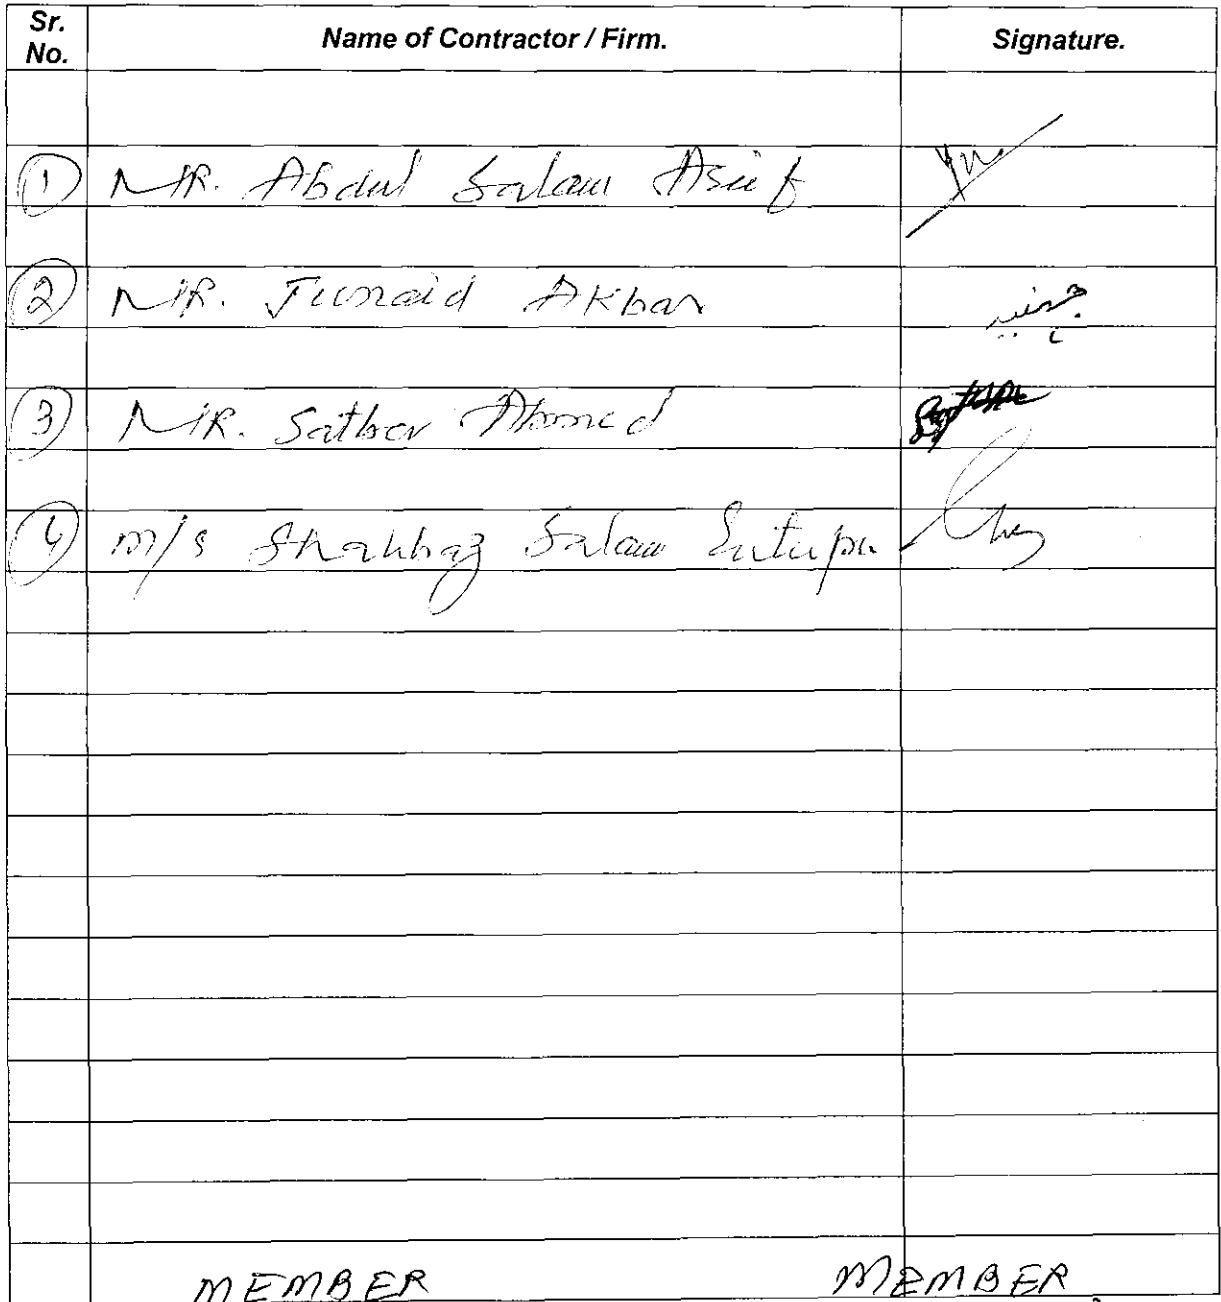 Sr. No.
Name of Contractor / Firm.
Signature.
1 MR. Abdul Salam Asif
2 MR. Junaid Akbar جنید
3 MR. Sather Ahmed
4 M/s Shahbaz Salam
MEMBER MEMBER